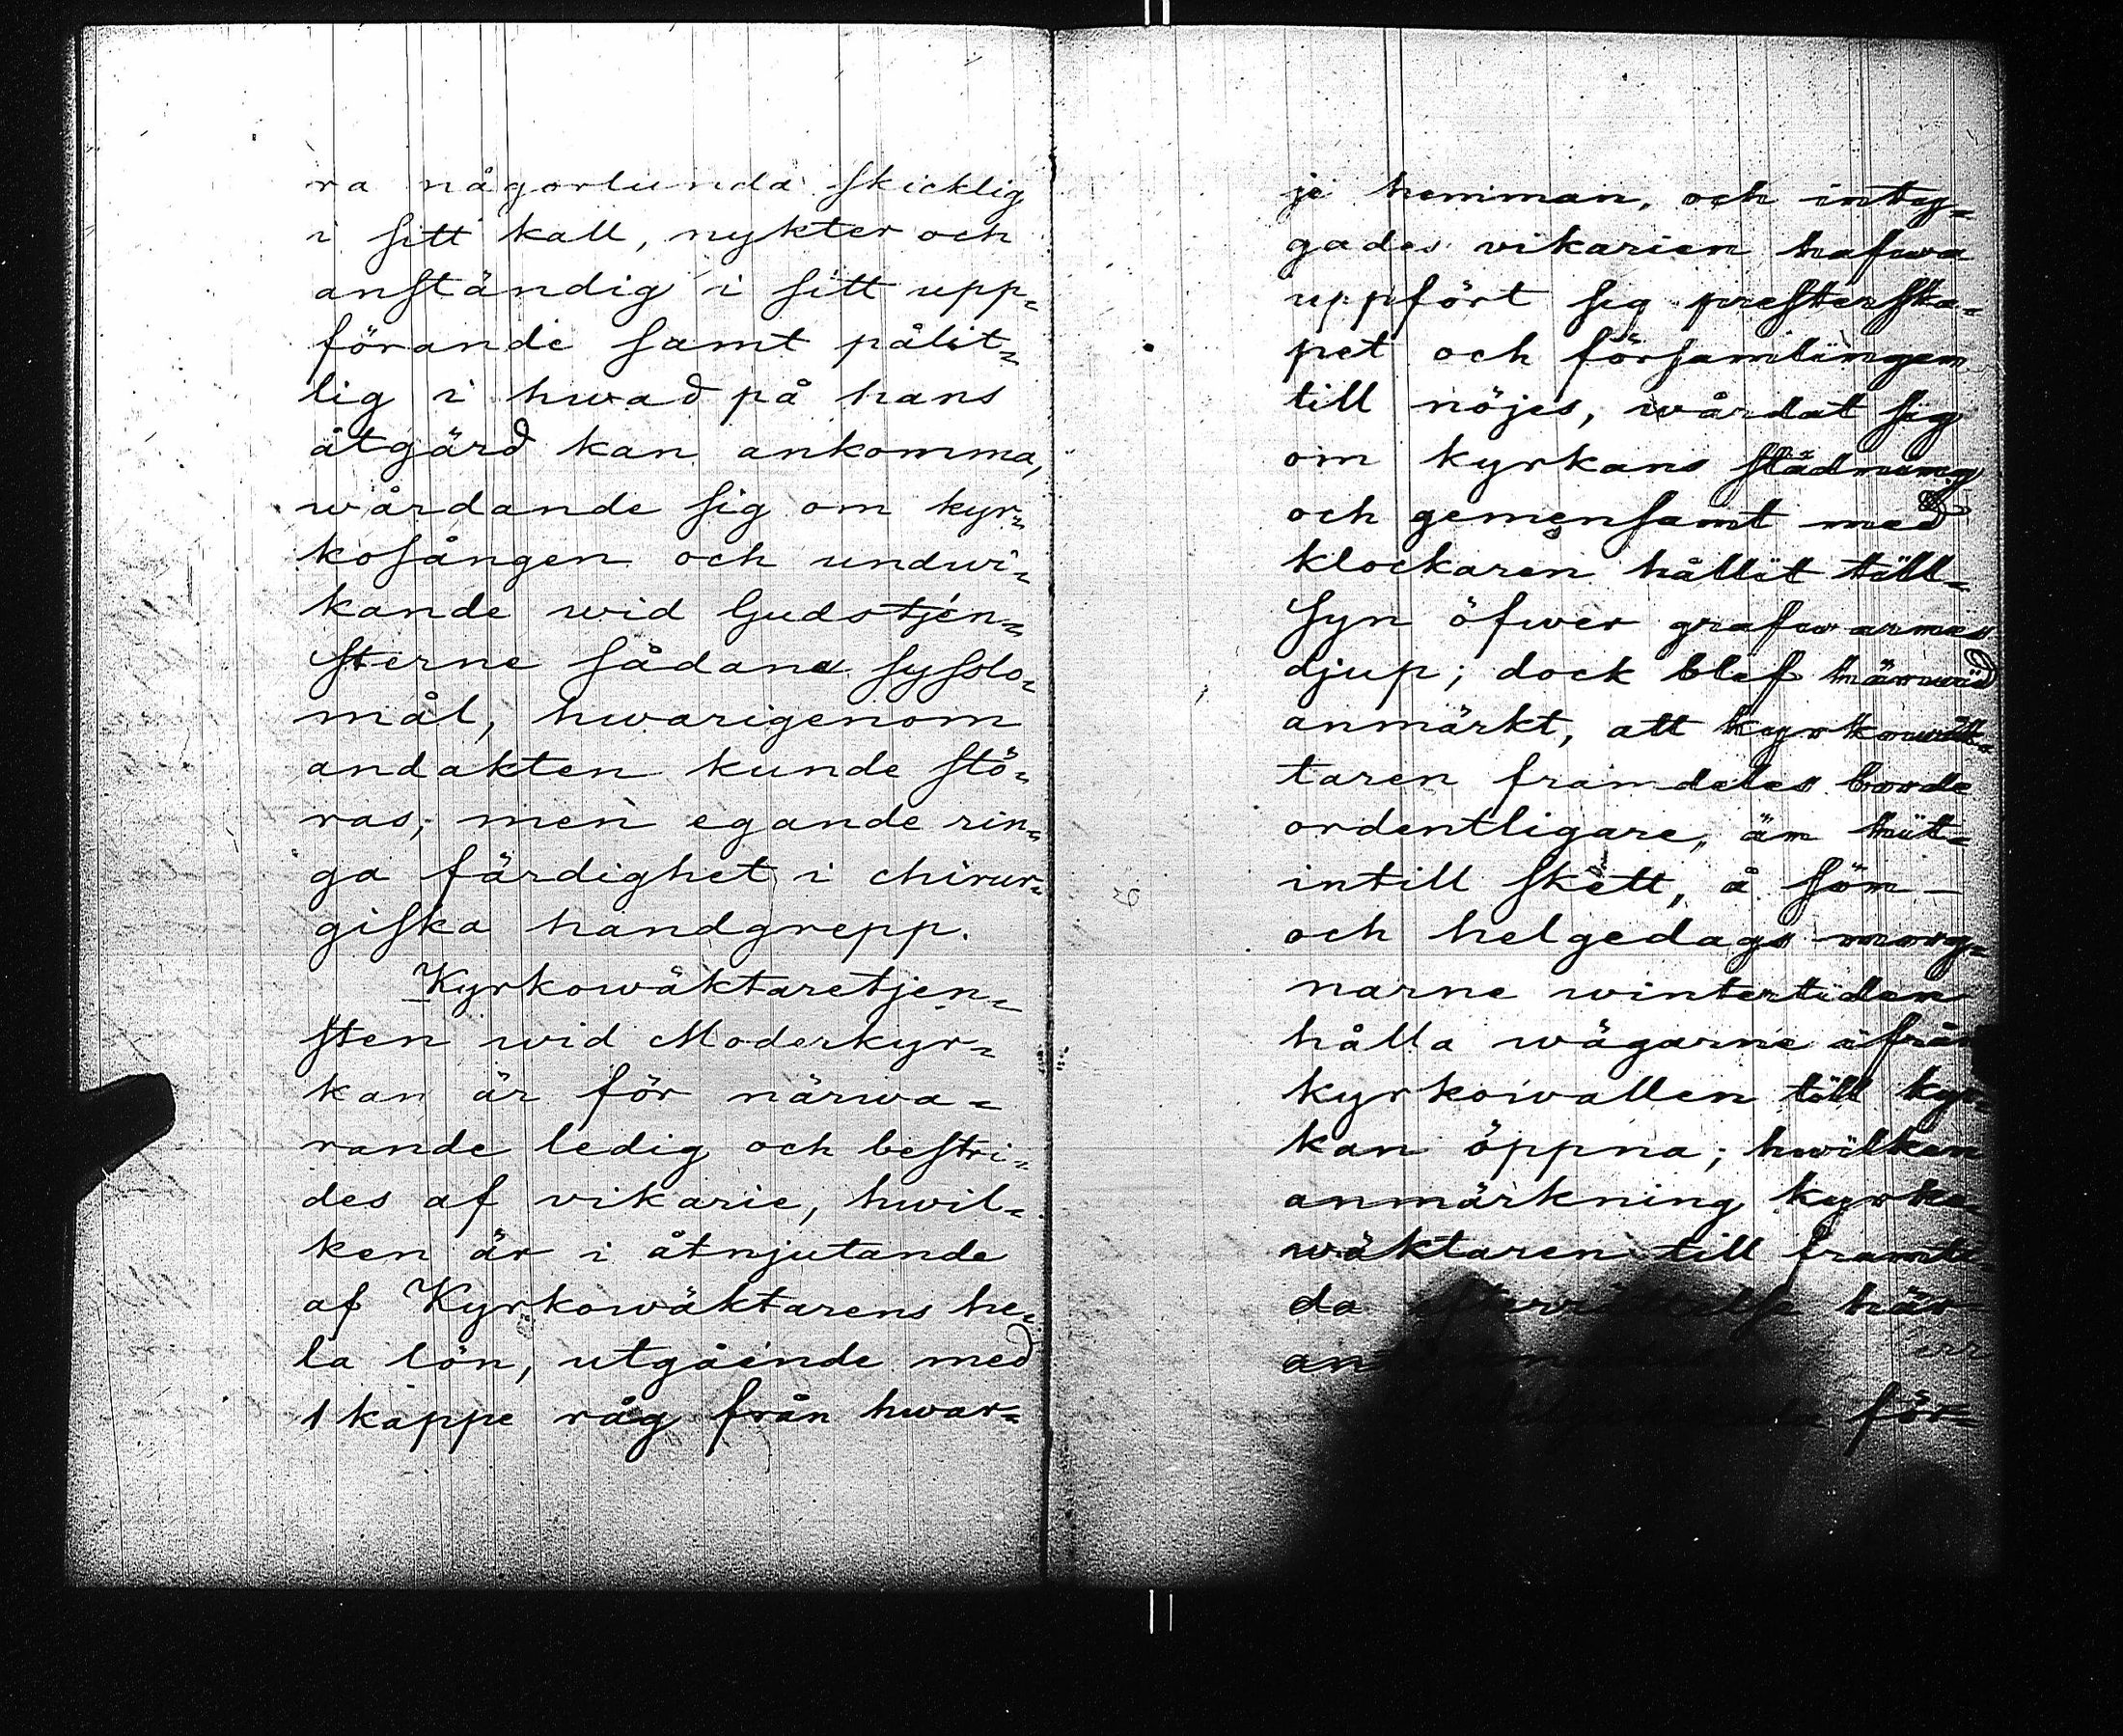 ra någorlunda skicklig
i sitt kall, nykter och
anständig i sitt upp=
förande samt pålit=
lig i hwad på hans
åtgärd kan ankomma,
wårdande sig om kyr=
kosången och undwi=
kande wid Gudstjen=
sterne sådana sysslo=
mål, hwarigenom
andakten kunde stö=
ras; men egande rin=
ga färdighet i chirur=
giska handgrepp.
Kyrkowäktaretjen=
sten wid Moderkyr=
kan är för närwa=
rande ledig och bestri=
des af vikarie, hwil=
ken är i åtnjutande
af Kyrkowäktarens he=
la lön, utgående med
1 kappe råg från hwar=
je hemman, och inty=
gades vikarien hafwa
uppfört sig presterska=
pet och församlingen
till nöjes, wårdat sig
om kyrkans städning
och gemensamt med
klockaren hållit till=
syn öfwer grafwarnes
djup; dock blef härwid
anmärkt, att kyrkowäk=
taren framdeles borde
ordentligare, än hit=
intill skett, å sön-
och helgedags morg=
narne wintertiden
hålla wägarne ifrån
kyrkowallen till kyr=
kan öppna; hwilken
anmärkning kyrko=
wäktaren till framti=
da efterrättelse här
för=